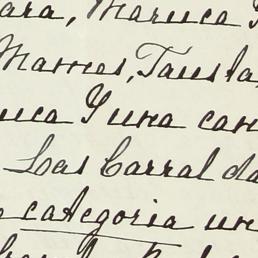 ara, Maruca
Mames, Tausta,
uca Y una can
Las Carral da
categoria un